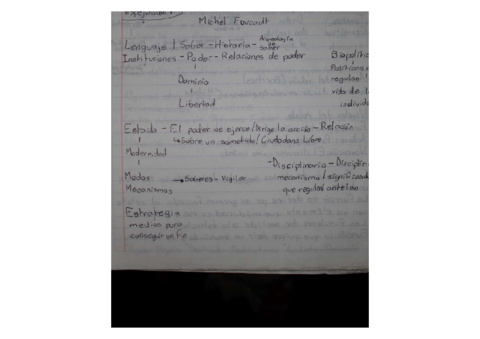 Michel Foucault
Lenguaje / Saber - Historia - Arqueología de Saber
Instituciones - Poder - Relaciones de poder
Dominio
Libertad
Estado - El poder se ejerce / Dirige la acción - Relación
Sobre un sometido / Ciudadano Libre
Modernidad
- Disciplinaria -
Modos → Saberes - Vigilar
mecanismo / 
Mecanismos
que regulan
Estrategia
medios para
conseguir un fin
regulan
vida de